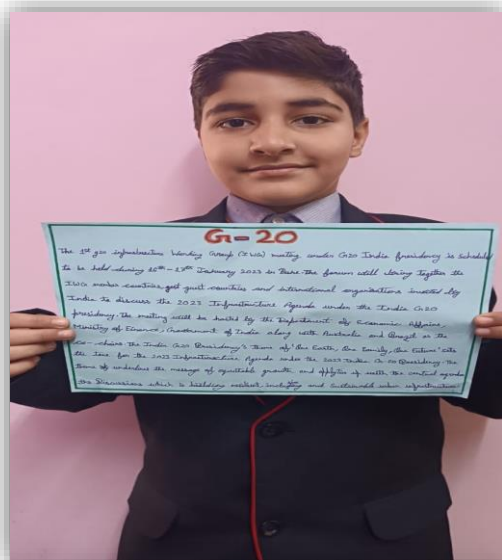 G-20
The 1st g20 infrastructure Working Group (IWG) meeting under G20 India Presidency is Scheduled
to be held during 16th - 17th January 2023 in Pune the forum will bring together the
IWG member countries, guest countries and international organisations invited by
India to discuss the 2023 Infrastructure Agenda under the India G20
presidency. The meeting will be hosted by the Department of economic Affairs,
Ministry of Finance, Government of India along with Australia and Brazil as the
Co-chairs the India G20 Presidency's theme of 'One Earth, One Family, One Future'
the tone for the 2023 Infrastructure Agenda under the 2023 India G-20 Presidency the
theme of underlines the message of equitable growth and of the central agenda
the Discussions which is building resilient, and sustainable urban infrastructure